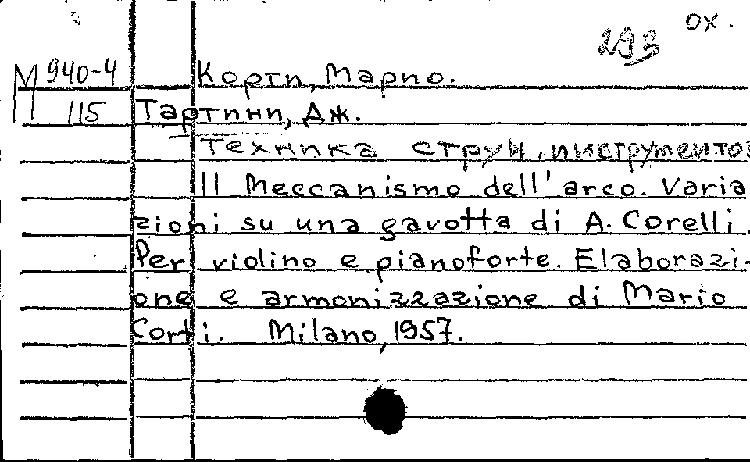 ох.
293
М 940-4 Корти, Марио.
115 Тартини, Дж.
Техника струн. инструментов
Il Meccanismo dell'arco. Varia
zioni su una gavotta di A. Corelli.
Per violino e pianoforte. Elaborazi-
one e armonizzazione di Mario
Corti. Milano, 1957.